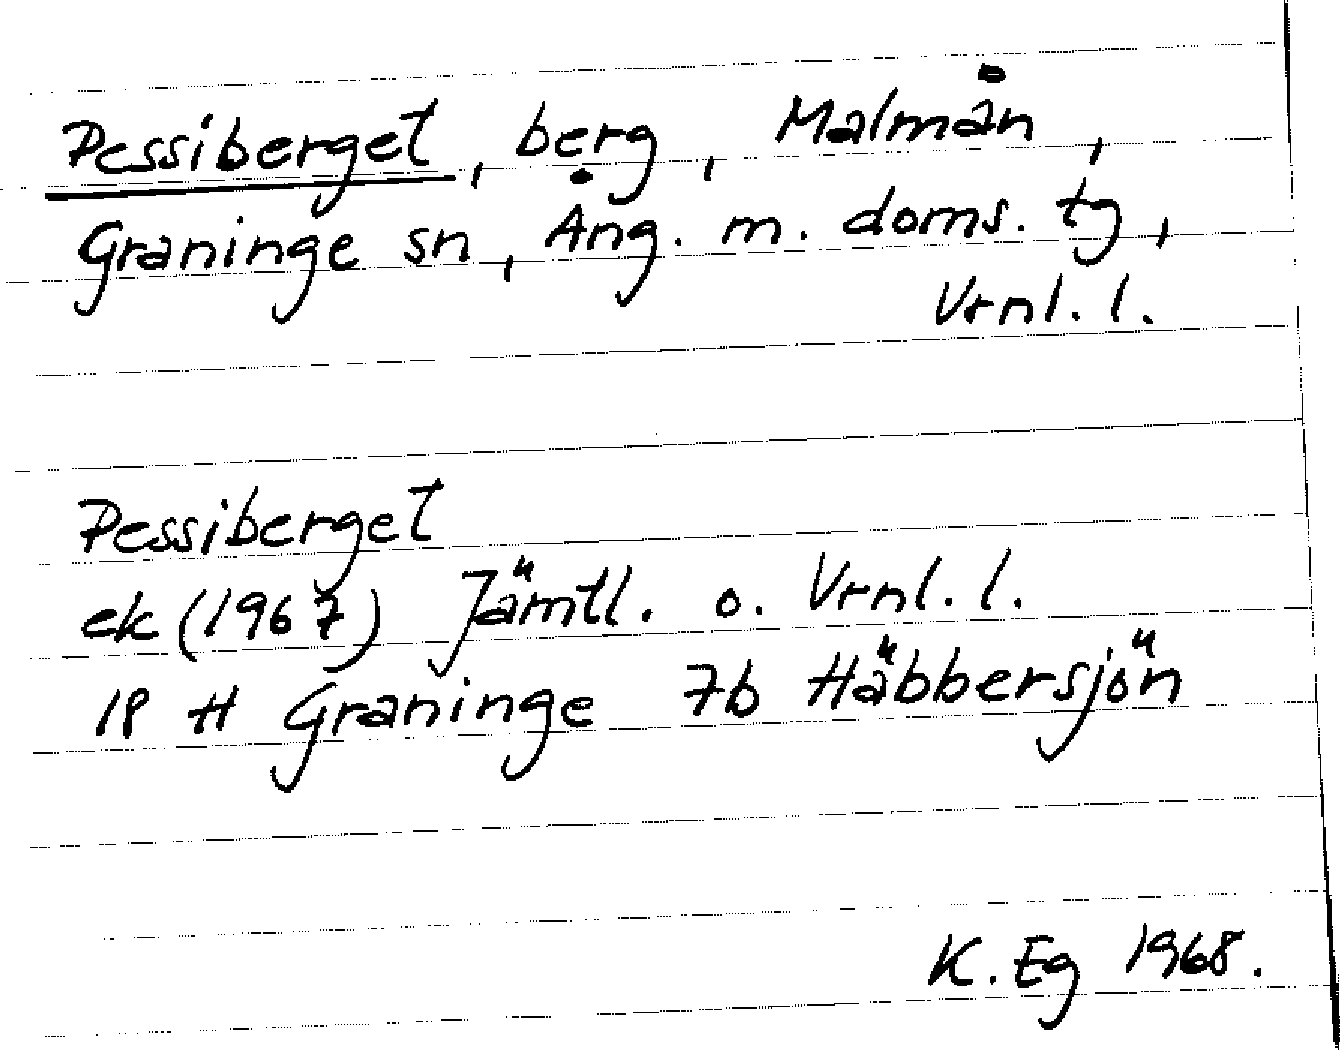 Pessiberget, berg, Malmån,
Graninge sn, Ång. m. doms. tg,
Vrnl. l.
Pessiberget
ek (1967) Jämtl. o. Vrnl. l.
18 H Graninge 7b Häbbersjön
K. Eg 1968.